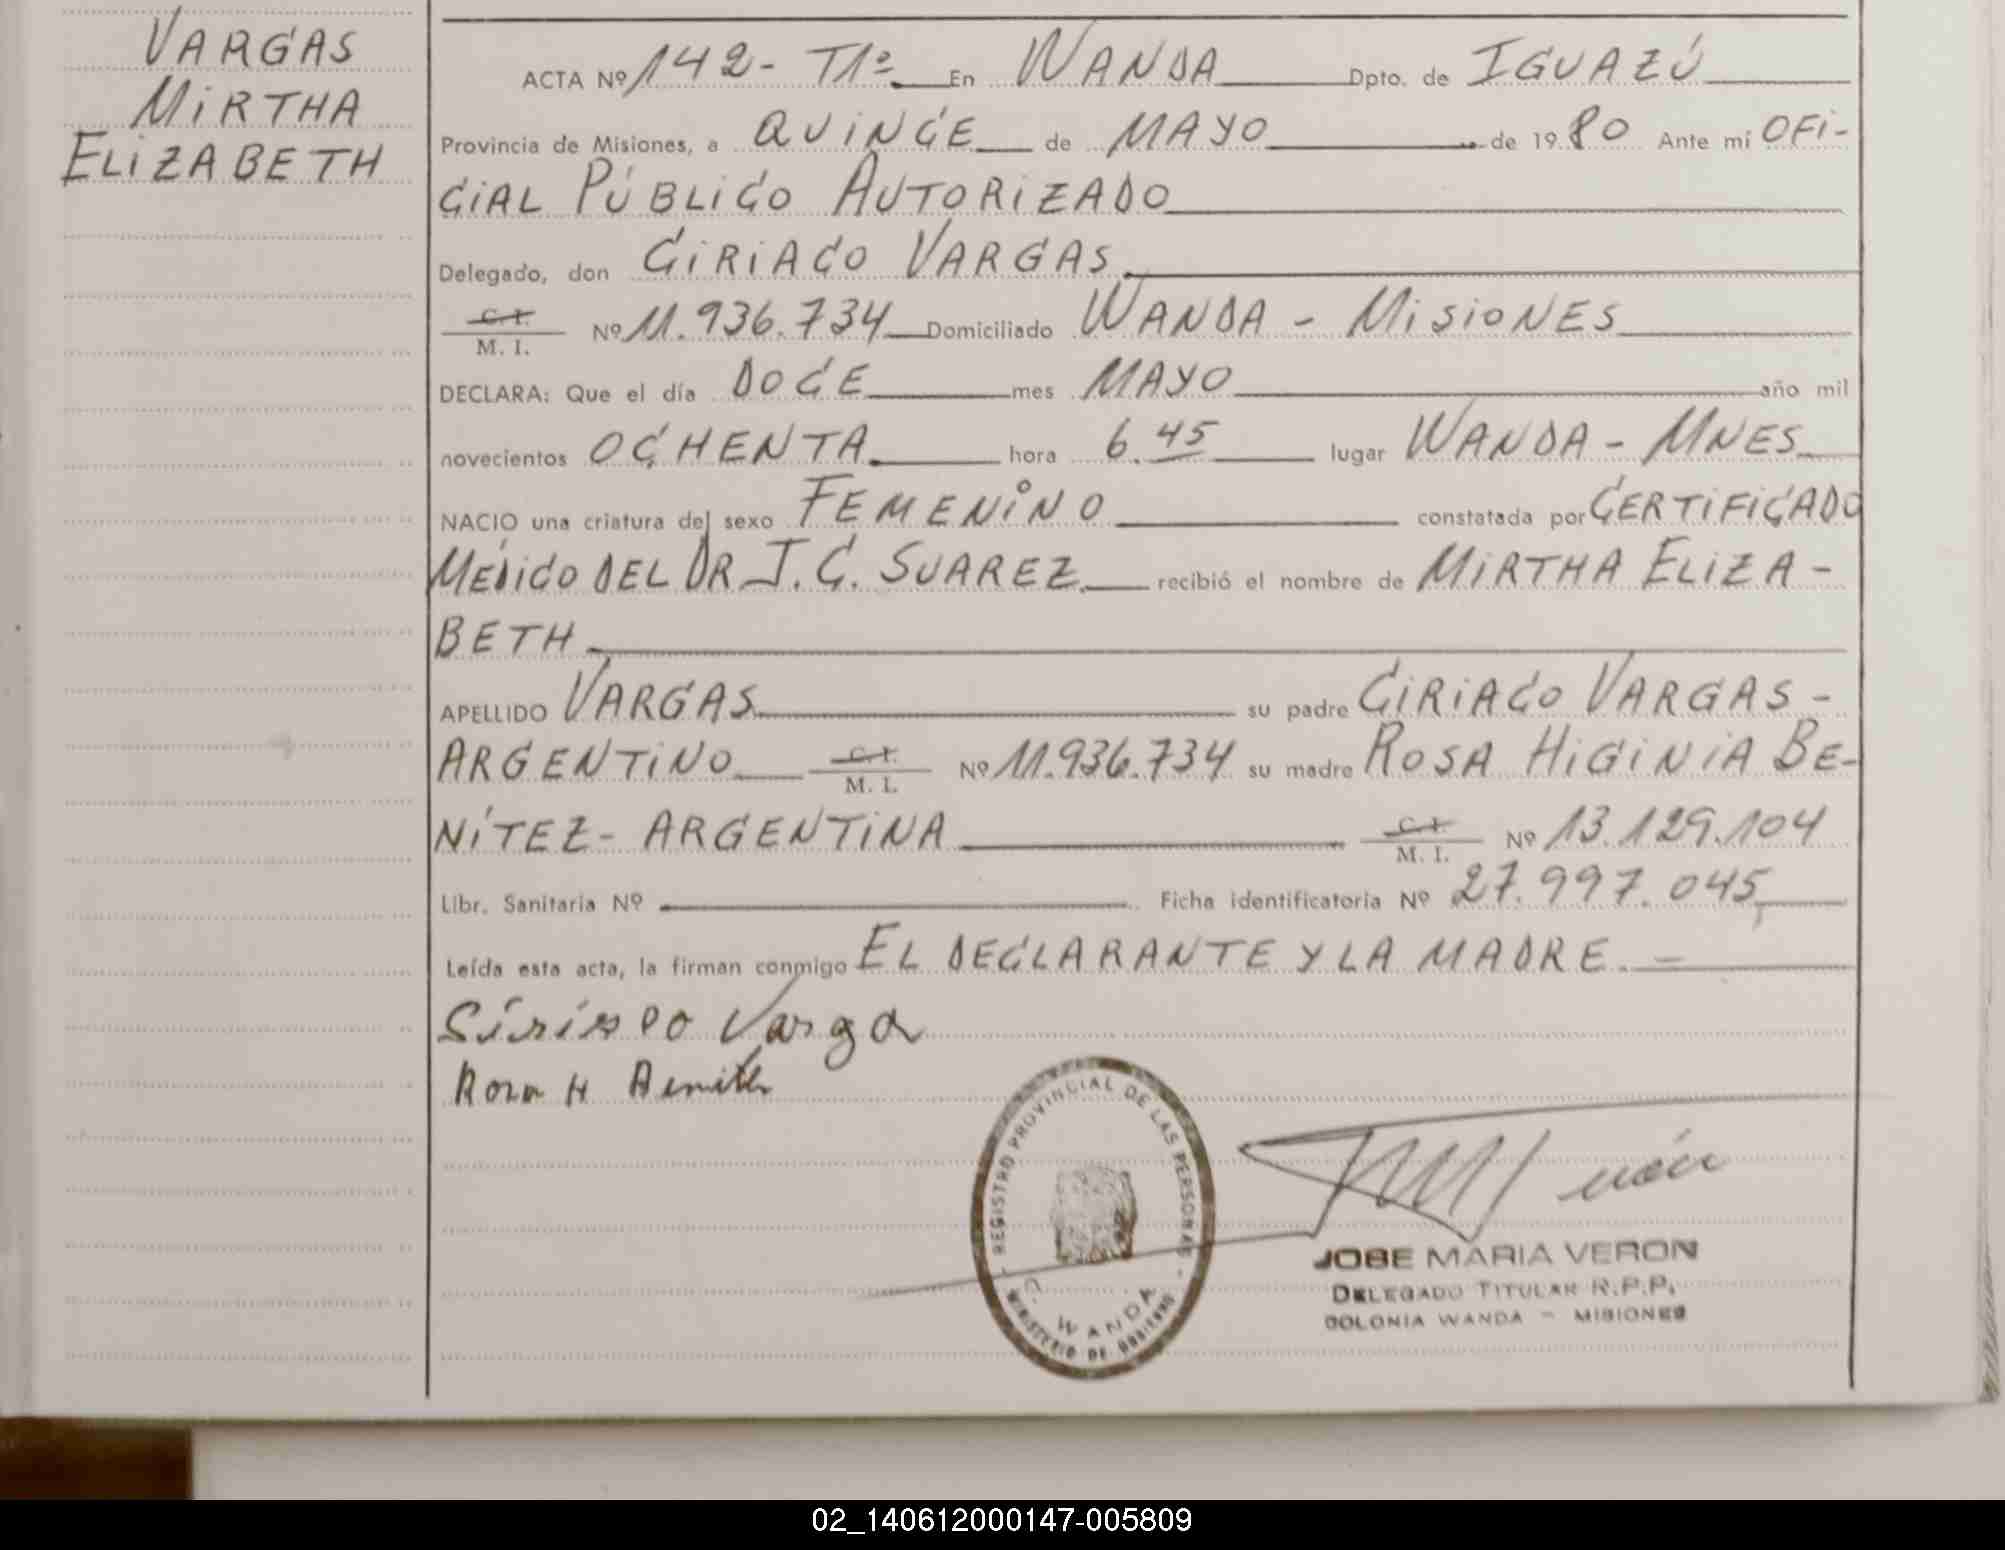 VARGAS
MIRTHA
ELIZABETH
ACTA Nº 142- T1º En WANDA Dpto. de IGUAZÚ
Provincia de Misiones, a QUINCE de MAYO de 1980 Ante mí OFI-
CIAL PÚBLICO AUTORIZADO
Delegado, don CIRIACO VARGAS
C. I.
M. I. Nº 11.936.734 Domiciliado WANDA - MISIONES
DECLARA: Que el día DOCE mes MAYO año mil
novecientos OCHENTA hora 6.45 lugar WANDA - MNES
NACIO una criatura del sexo FEMENINO constatada por CERTIFICADO
MÉDICO DEL DR J. C. SUAREZ. recibió el nombre de MIRTHA ELIZA-
BETH
APELLIDO VARGAS su padre CIRIACO VARGAS -
ARGENTINO C. I. M. I. Nº 11.936.734 su madre ROSA HIGINIA BE-
NÍTEZ - ARGENTINA C. I. M. I. Nº 13.129.104
Libr. Sanitaria Nº Ficha identificatoria Nº 27.997.045
Leída esta acta, la firman conmigo EL DECLARANTE Y LA MADRE. -
Varga
Rosa H Benitez
REGISTRO PROVINCIAL DE LAS PERSONAS
WANDA
MINISTERIO DE GOBIERNO
JOSE MARIA VERON
DELEGADO TITULAR R.P.P.
COLONIA WANDA - MISIONES
02_140612000147-005809